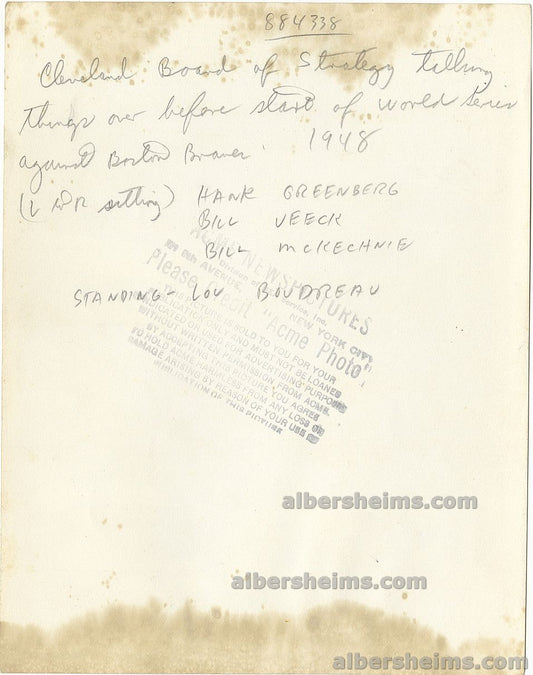 884338
Cleveland Board of Strategy talking
things over before start of World Series
against Boston Braves. 1948
(L to R sitting) HANK GREENBERG
BILL VEECK
BILL McKECHNIE
STANDING - LOU BOUDREAU
ACME NEWSPICTURES
Division of Service, Inc.
8th AVENUE, NEW YORK CITY
Please Credit "Acme Photo"
THIS PICTURE IS SOLD TO YOU FOR YOUR
PUBLICATION ONLY AND MUST NOT BE LOANED
SYNDICATED OR USED FOR ADVERTISING PURPOSES
WITHOUT WRITTEN PERMISSION FROM ACME.
BY ACCEPTING THIS PICTURE YOU AGREE
TO HOLD ACME HARMLESS FROM ANY LOSS OR
DAMAGE ARISING BY REASON OF YOUR USE
OF THIS PICTURE
albersheims.com
albersheims.com
albersheims.com